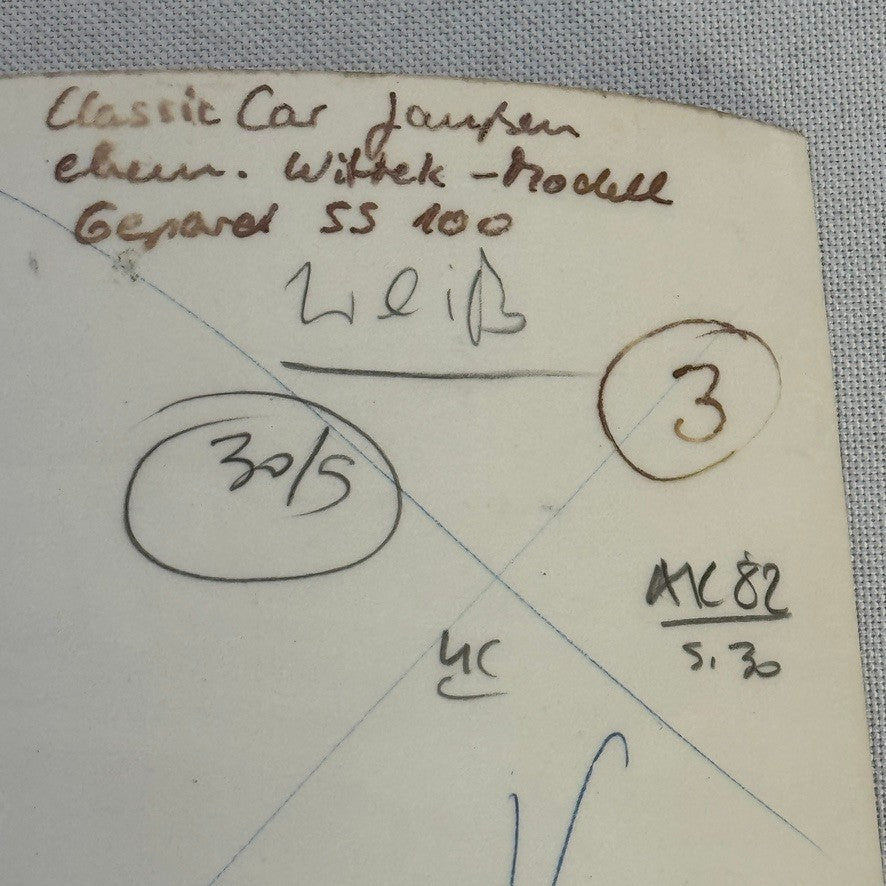 Classic Car Janßen
ehem. Wittek-Modell
Gepard SS 100
weiß
3
30/5
AK 82
S. 30
4c